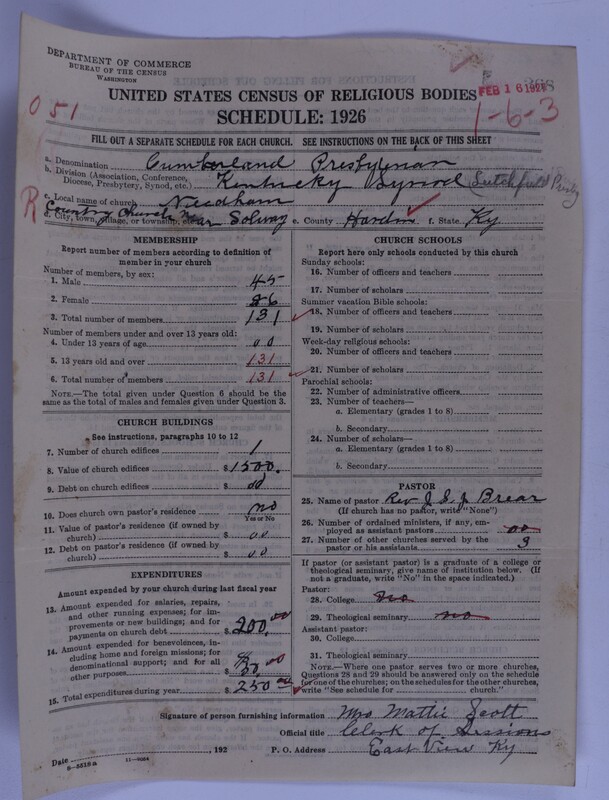 DEPARTMENT OF COMMERCE
BUREAU OF THE CENSUS
WASHINGTON
FEB 16 1927
1-6-3
051
UNITED STATES CENSUS OF RELIGIOUS BODIES
SCHEDULE: 1926
FILL OUT A SEPARATE SCHEDULE FOR EACH CHURCH. SEE INSTRUCTIONS ON THE BACK OF THIS SHEET
a. Denomination Cumberland Presbyterian
b. Division (Association, Conference, Diocese, Presbytery, Synod, etc.) Kentucky Synod Litchfield Presby
c. Local name of church Needham
R
Country Church Near Solway
d. City, town, village, or township, etc. e. County Hardin f. State Ky
MEMBERSHIP
Report number of members according to definition of
member in your church
Number of members, by sex:
1. Male 45
2. Female 86
3. Total number of members 131
Number of members under and over 13 years old:
4. Under 13 years of age 00
5. 13 years old and over 131
6. Total number of members 131
NOTE.—The total given under Question 6 should be
the same as the total of males and females given under Question 3.
CHURCH BUILDINGS
See instructions, paragraphs 10 to 12
7. Number of church edifices 1
8. Value of church edifices $ 1500.
9. Debt on church edifices $ 00
10. Does church own pastor's residence? no
Yes or No
11. Value of pastor's residence (if owned by
church) $ 00
12. Debt on pastor's residence (if owned by
church) $ 00
EXPENDITURES
Amount expended by your church during last fiscal year
13. Amount expended for salaries, repairs,
and other running expenses; for im-
provements or new buildings; and for
payments on church debt $ 200.00
14. Amount expended for benevolences, in-
cluding home and foreign missions; for
denominational support; and for all
other purposes $ 50.00
15. Total expenditures during year $ 250.00
CHURCH SCHOOLS
Report here only schools conducted by this church
Sunday schools:
16. Number of officers and teachers
17. Number of scholars
Summer vacation Bible schools:
18. Number of officers and teachers
19. Number of scholars
Week-day religious schools:
20. Number of officers and teachers
21. Number of scholars
Parochial schools:
22. Number of administrative officers
23. Number of teachers—
a. Elementary (grades 1 to 8)
b. Secondary
24. Number of scholars—
a. Elementary (grades 1 to 8)
b. Secondary
PASTOR
25. Name of pastor Rev J. S. J. Brear
(If church has no pastor, write "None")
26. Number of ordained ministers, if any, em-
ployed as assistant pastors 00
27. Number of other churches served by the
pastor or his assistants 3
If pastor (or assistant pastor) is a graduate of a college or
theological seminary, give name of institution below. (If
not a graduate, write "No" in the space indicated.)
Pastor:
28. College no
29. Theological seminary no
Assistant pastor:
30. College
31. Theological seminary
NOTE.—Where one pastor serves two or more churches,
Questions 28 and 29 should be answered only on the schedule
for one of the churches; on the schedules for the other churches,
write "See schedule for church."
Signature of person furnishing information Mrs Mattie Scott
Official title Clerk of Sessions
Date , 192 P. O. Address East View Ky
8-5518a 11-9064